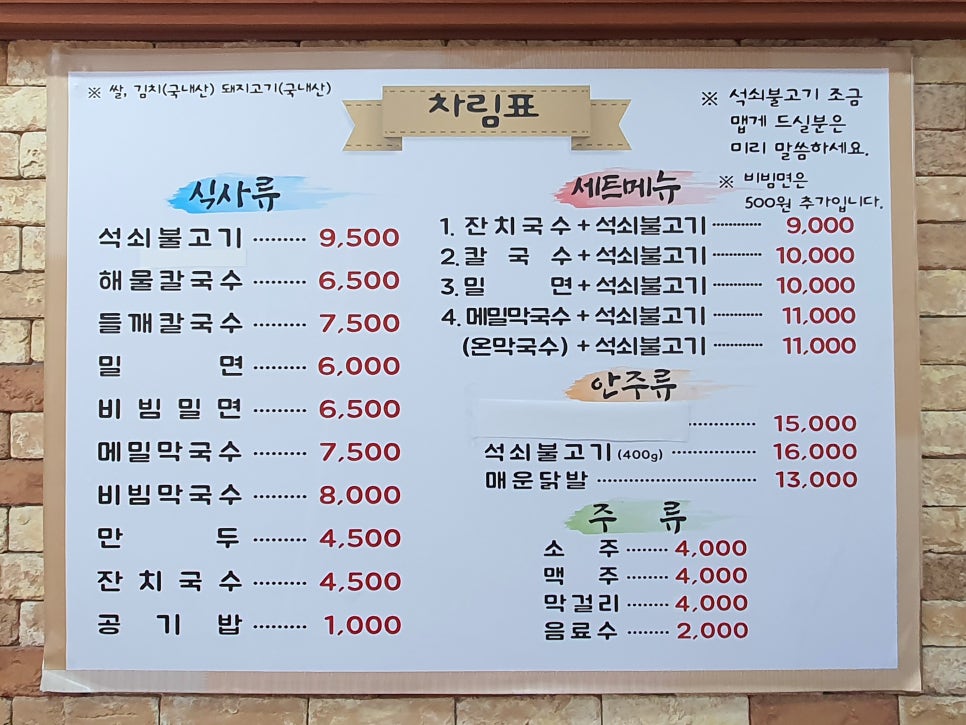 ※ 쌀, 김치(국내산) 돼지고기(국내산)
차림표
※ 석쇠불고기 조금
맵게 드실분은
미리 말씀하세요.
※ 비빔면은
500원 추가입니다.
식사류
석쇠불고기 ········· 9,500
해물칼국수 ········· 6,500
들깨칼국수 ········· 7,500
밀 면 ········· 6,000
비빔밀면 ········· 6,500
메밀막국수 ········· 7,500
비빔막국수 ········· 8,000
만 두 ········· 4,500
잔치국수 ········· 4,500
공 기 밥 ········· 1,000
세트메뉴
1. 잔치국수 + 석쇠불고기 ············ 9,000
2. 칼 국 수 + 석쇠불고기 ············ 10,000
3. 밀 면 + 석쇠불고기 ············ 10,000
4. 메밀막국수 + 석쇠불고기 ············ 11,000
(온막국수) + 석쇠불고기 ············ 11,000
안주류
················ 15,000
석쇠불고기 (400g) ···················· 16,000
매운닭발 ······································ 13,000
주 류
소 주 ········ 4,000
맥 주 ········ 4,000
막걸리 ········ 4,000
음료수 ········ 2,000